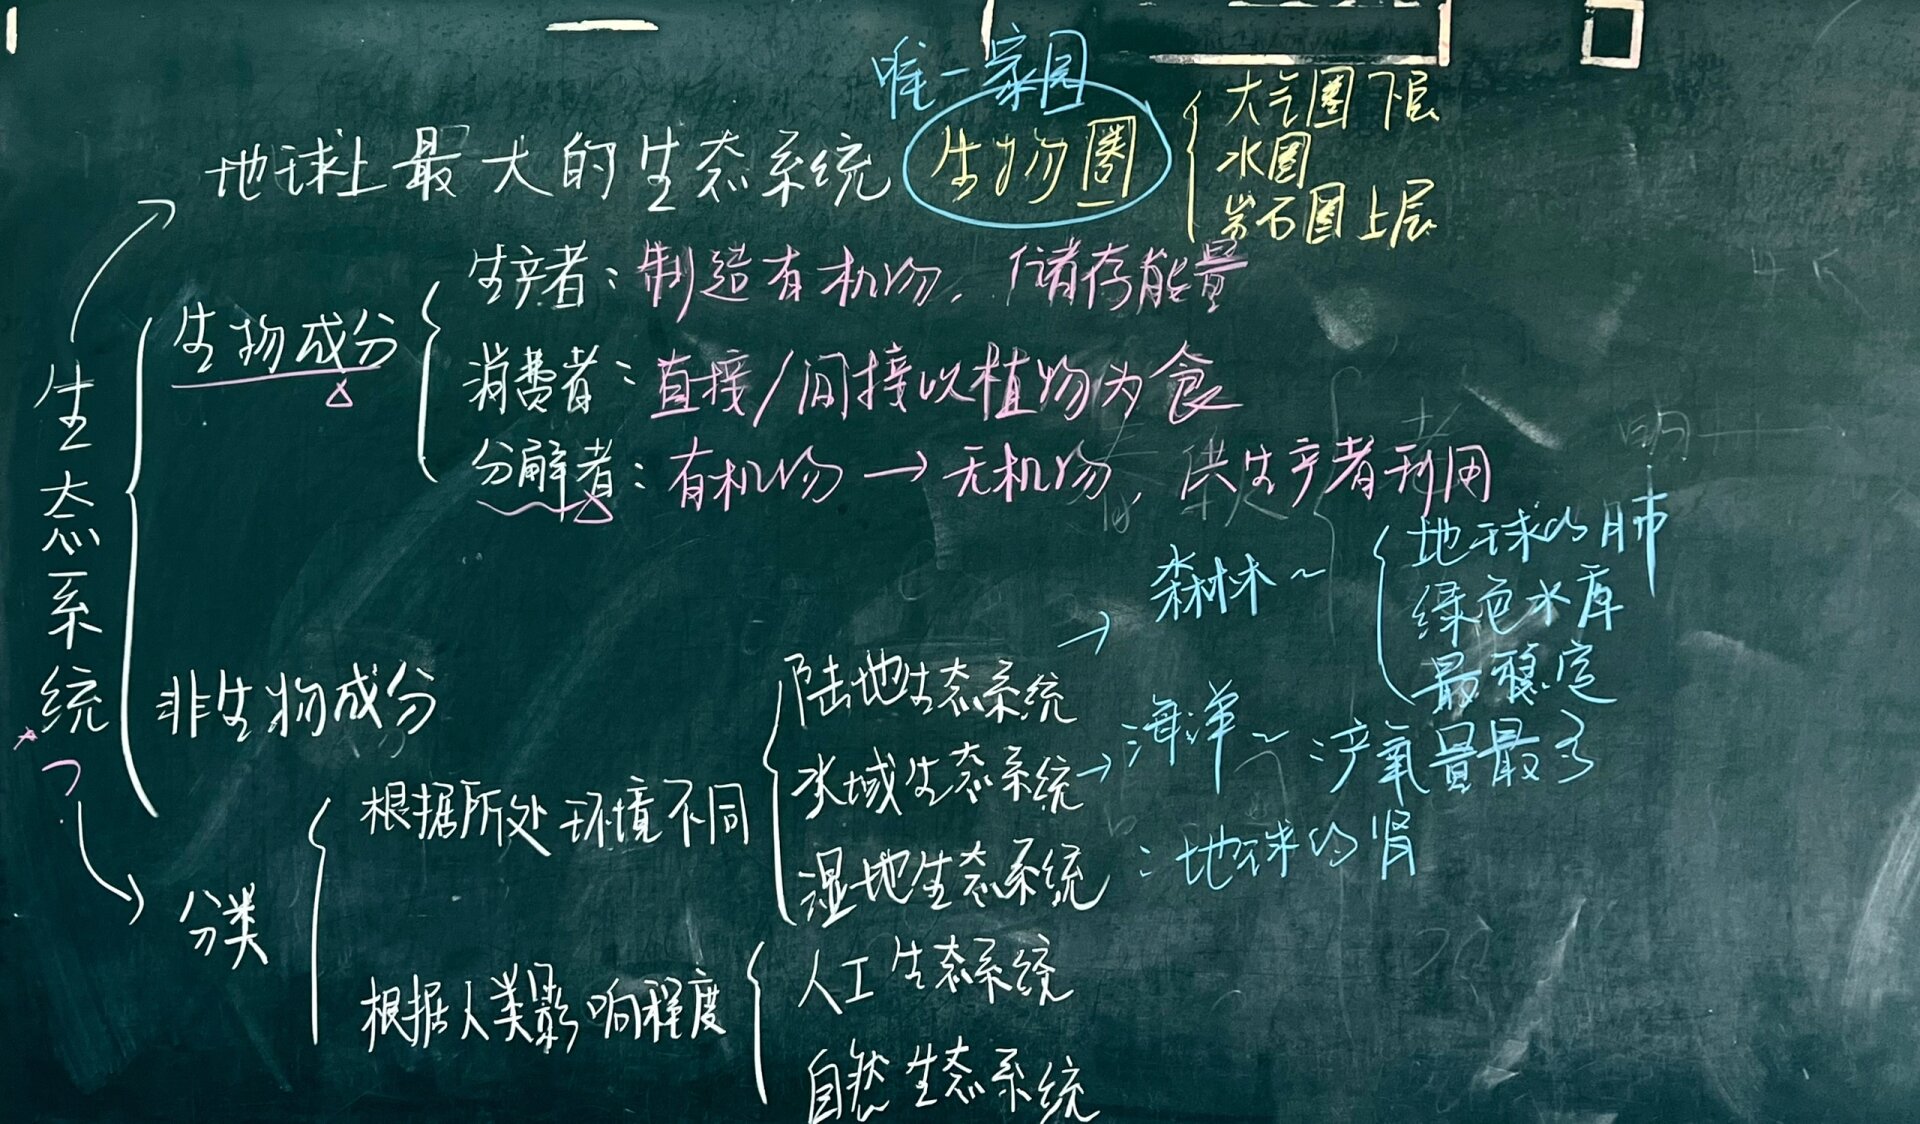 唯一家园
地球上最大的生态系统 生物圈
大气圈下层
水圈
岩石圈上层
生态系统
生物成分
生产者：制造有机物，储存能量
消费者：直接/间接以植物为食
分解者：有机物→无机物，供生产者利用
非生物成分
分类
根据所处环境不同
陆地生态系统→森林~
地球的肺
绿色水库
最稳定
水域生态系统→海洋~：产氧量最多
湿地生态系统：地球的肾
根据人类影响程度
人工生态系统
自然生态系统